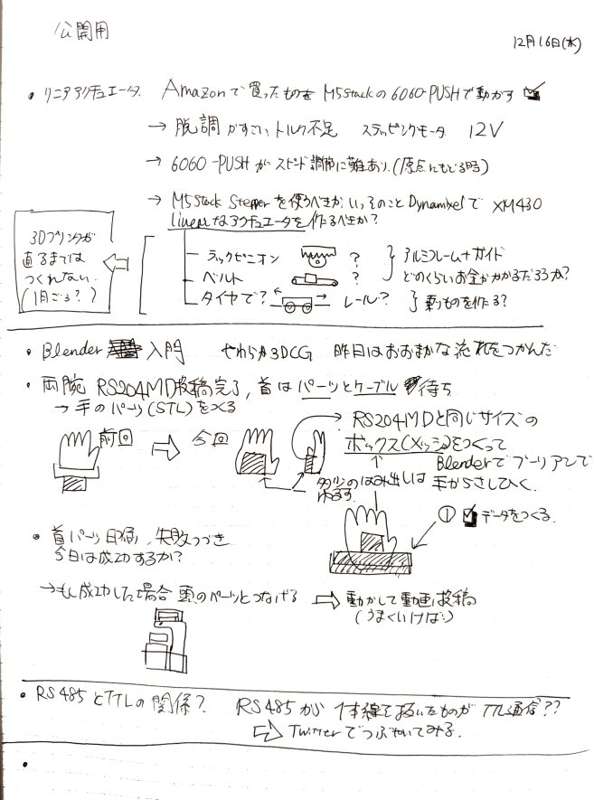 公開用
12月16日(水)
• リニアアクチュエータ Amazonで買ったものを M5Stackの6060-PUSHで動かす
→ 脱調がすごい、トルク不足 ステッピングモータ 12V
→ 6060-PUSHがスピード調節に難あり(原点にもどる時)
→ M5Stack Stepperを使うべきか、いっそのことDynamixelで XM430
linearなアクチュエータを作るべきか?
3Dプリンタが
直るまでは
つくれない
(1月ごろ?)
ラックピニオン ?
ベルト ?
タイヤで? レール?
アルミフレーム+ガイド
どのくらいお金がかかるだろうか?
乗りものを作る?
• Blender 入門 やわらか3DCG 昨日はおおまかな流れをつかんだ
• 両腕 RS204MD投稿完了, 首はパーツとケーブル待ち
→ 手のパーツ(STL)をつくる
前回 今回
RS204MDと同じサイズの
ボックス(メッシュ)をつくって
Blenderでブーリアンで
手からさしひく.
はみ出しは
① データをつくる
• 首パーツ印刷, 失敗つづき
今日は成功するか?
→もし成功した場合 頭のパーツとつなげる
動かして動画投稿
(うまくいけば)
• RS485とTTLの関係? RS485から 1本線を抜いたものが TTL通信??
Twitterでつぶやいてみる.
•